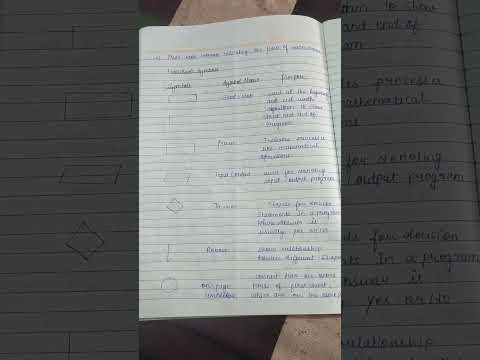 Flowchart Symbols
Symbols Symbol Name Purpose
used at the beginning
and end of the
algorithm to show
start and end of
program
Process Indicates processes
like mathematical
operations
Input/Output used for denoting
input/output program
statements in a program
where answer is
usually yes or No
Arrow shows relationship
between different shapes
On-page
connector
connect two or more
parts of flowchart,
which are on the same p
to show
and end of
am
processes
mathematical
for denoting
output program
ds for decision
ts in a program
answer is
yes or No
relationship